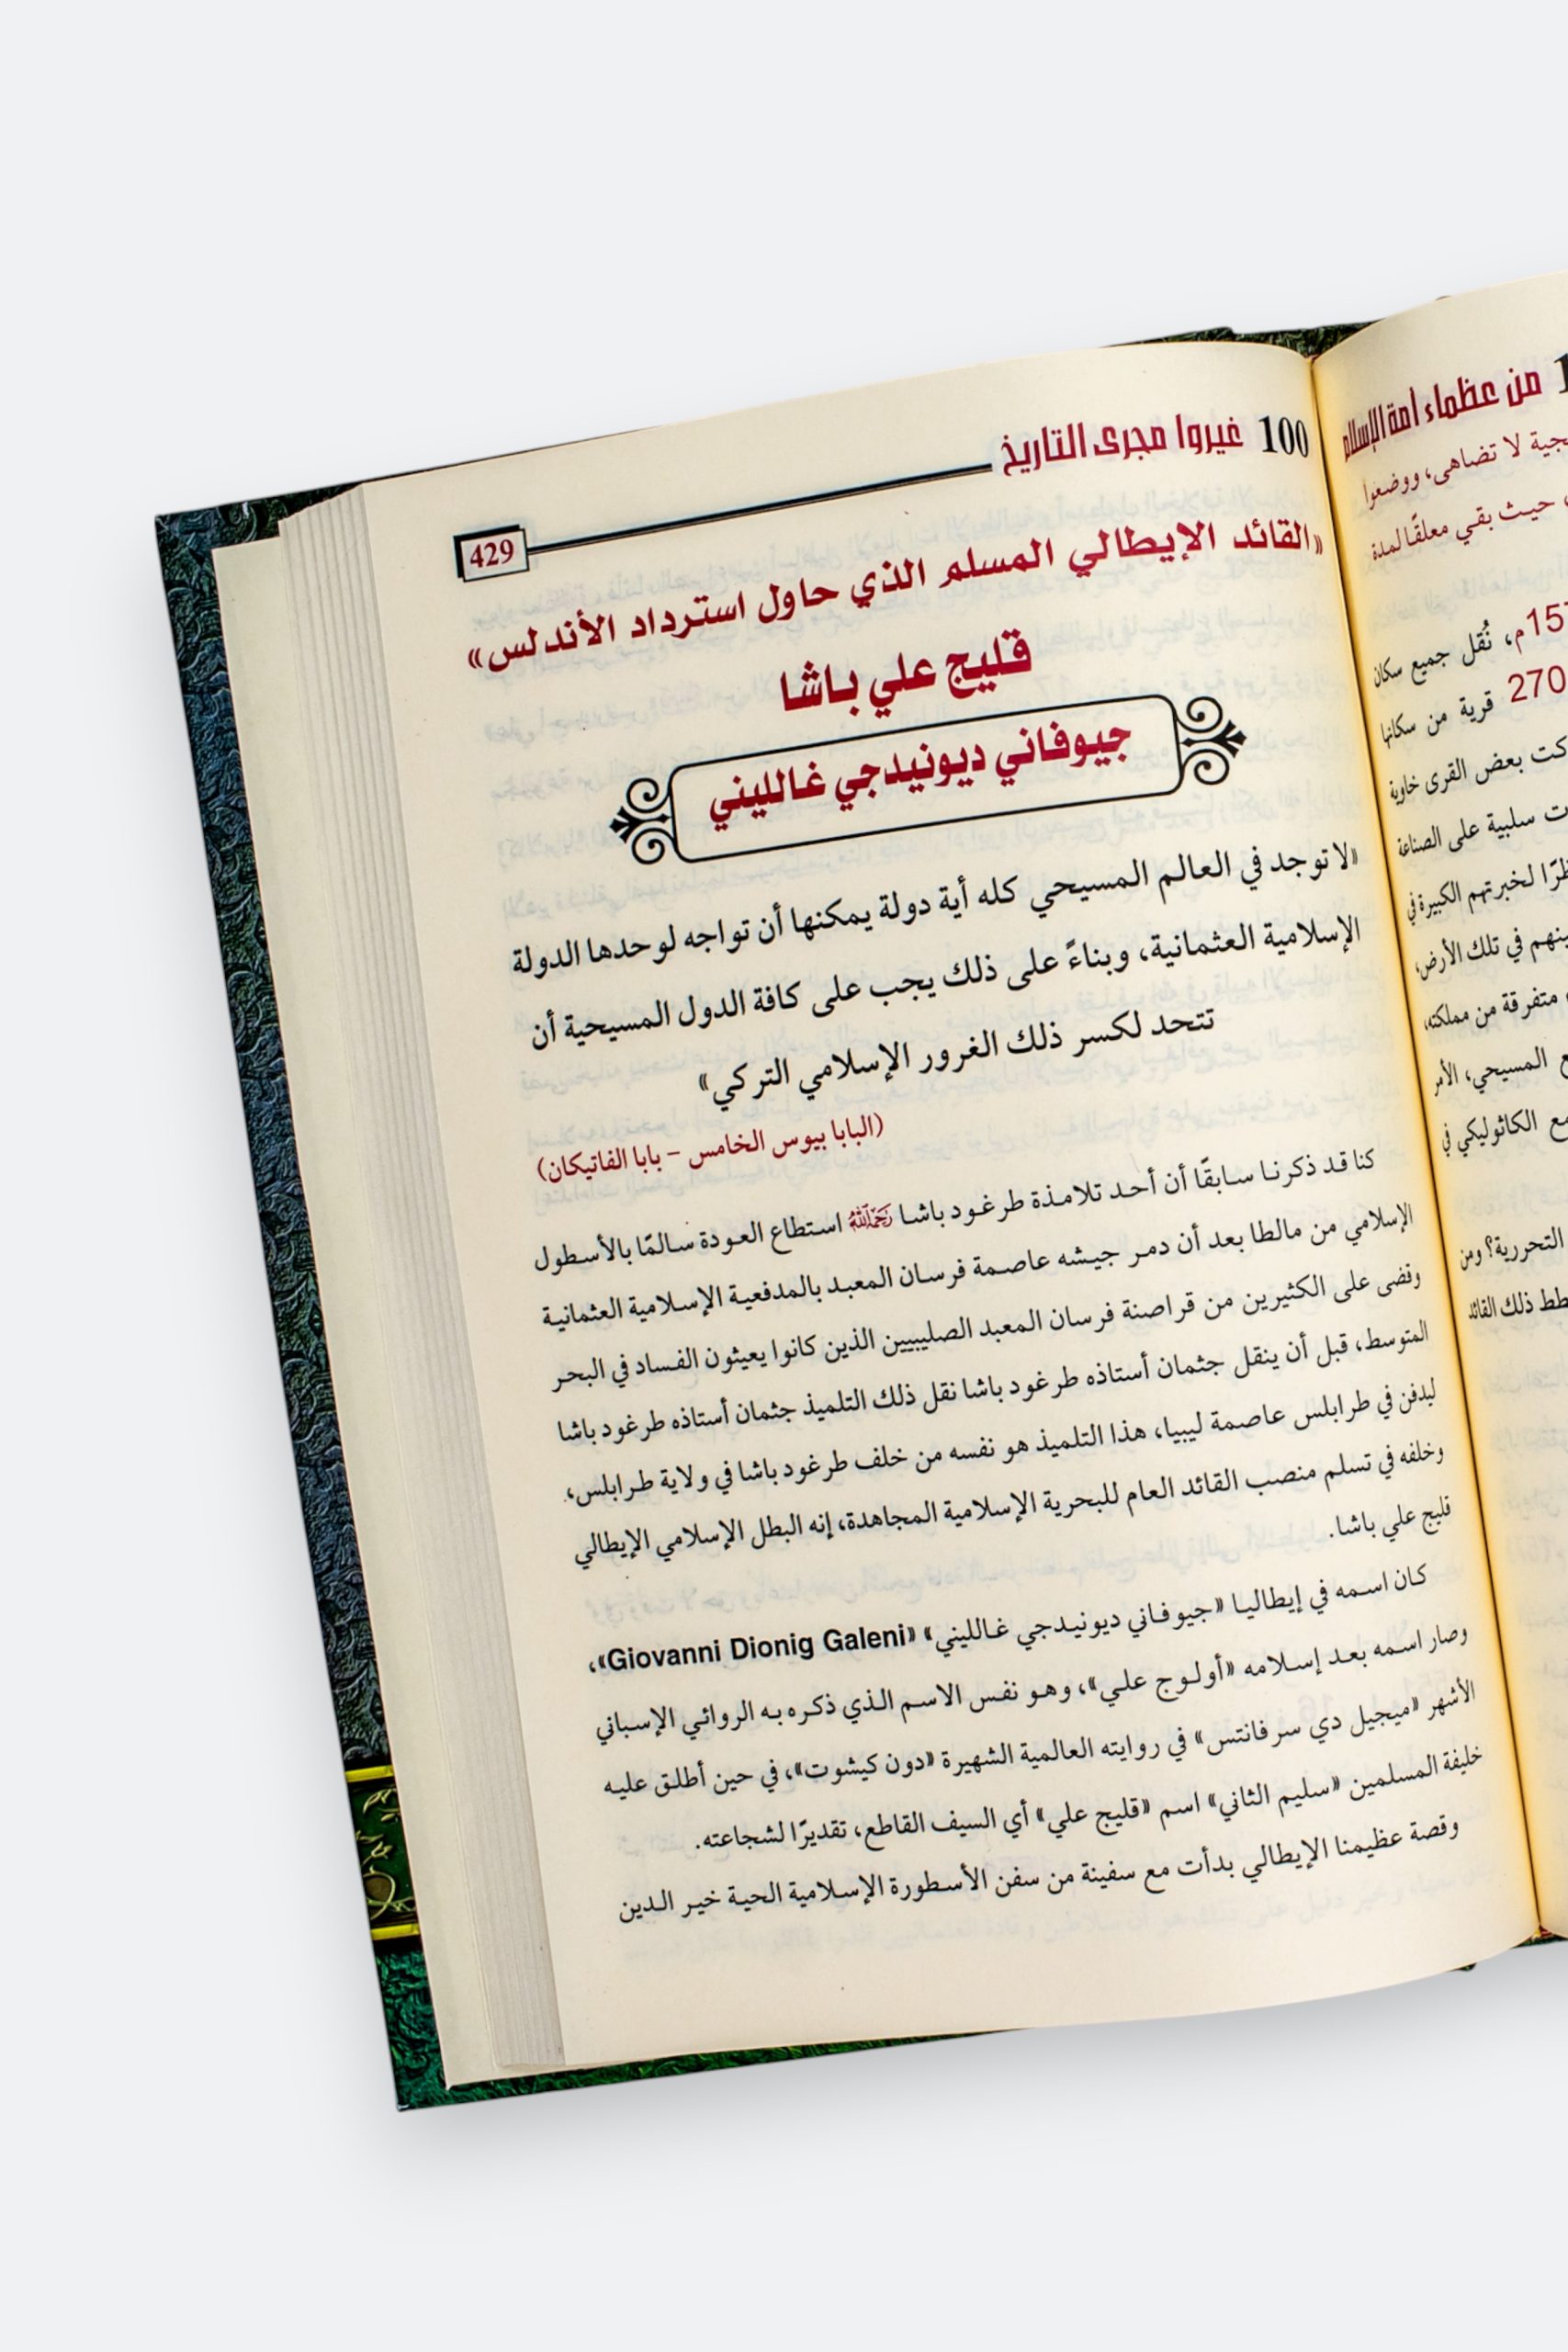 من عظماء أمة الإسلام
لا تضاهى، ووضعوا
حيث بقي معلقًا لمدة
م، نُقل جميع سكان
270 قرية من سكانها
بعض القرى خاوية
سلبية على الصناعة
لخبرتهم الكبيرة في
في تلك الأرض،
متفرقة من مملكته،
المسيحي، الأمر
الكاثوليكي في
التحررية؟ ومن
ذلك القائد
100 غيروا مجرى التاريخ
429
«القائد الإيطالي المسلم الذي حاول استرداد الأندلس»
قليج علي باشا
جيوفاني ديونيدجي غالليني
«لا توجد في العالم المسيحي كله أية دولة يمكنها أن تواجه لوحدها الدولة
الإسلامية العثمانية، وبناءً على ذلك يجب على كافة الدول المسيحية أن
تتحد لكسر ذلك الغرور الإسلامي التركي»
(البابا بيوس الخامس – بابا الفاتيكان)
كنا قد ذكرنا سابقًا أن أحد تلامذة طرغود باشا رَحِمَهُ اللَّهُ استطاع العودة سالمًا بالأسطول
الإسلامي من مالطا بعد أن دمر جيشه عاصمة فرسان المعبد بالمدفعية الإسلامية العثمانية
وقضى على الكثيرين من قراصنة فرسان المعبد الصليبيين الذين كانوا يعيثون الفساد في البحر
المتوسط، قبل أن ينقل جثمان أستاذه طرغود باشا نقل ذلك التلميذ جثمان أستاذه طرغود باشا
ليدفن في طرابلس عاصمة ليبيا، هذا التلميذ هو نفسه من خلف طرغود باشا في ولاية طرابلس،
وخلفه في تسلم منصب القائد العام للبحرية الإسلامية المجاهدة، إنه البطل الإسلامي الإيطالي
قليج علي باشا.
كان اسمه في إيطاليا «جيوفاني ديونيدجي غالليني» «Giovanni Dionig Galeni»،
وصار اسمه بعد إسلامه «أولوج علي»، وهو نفس الاسم الذي ذكره به الروائي الإسباني
الأشهر «ميجيل دي سرفانتس» في روايته العالمية الشهيرة «دون كيشوت»، في حين أطلق عليه
خليفة المسلمين «سليم الثاني» اسم «قليج علي» أي السيف القاطع، تقديرًا لشجاعته.
وقصة عظيمنا الإيطالي بدأت مع سفينة من سفن الأسطورة الإسلامية الحية خير الدين